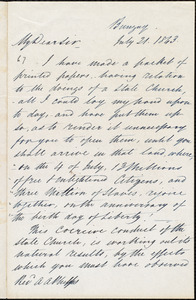 Bungay.
July 21. 1843
My Dear Sir
I have made a packet of
printed papers, having relation
to the doings of a State Church,
all I could lay my hand upon
to day, and have put them up
so, as to render it unnecessary
for you to open them, until you
shall arrive in that land, where
on the 4 of July, 13 Millions
of free & enlightened Citizens, and
three Million of Slaves, rejoice
together, on the anniversary of
the birth day of Liberty!
This coercive conduct of the
State Church, is working out its
natural results, by the effects
which you must have observed
Revd. A A Phelps